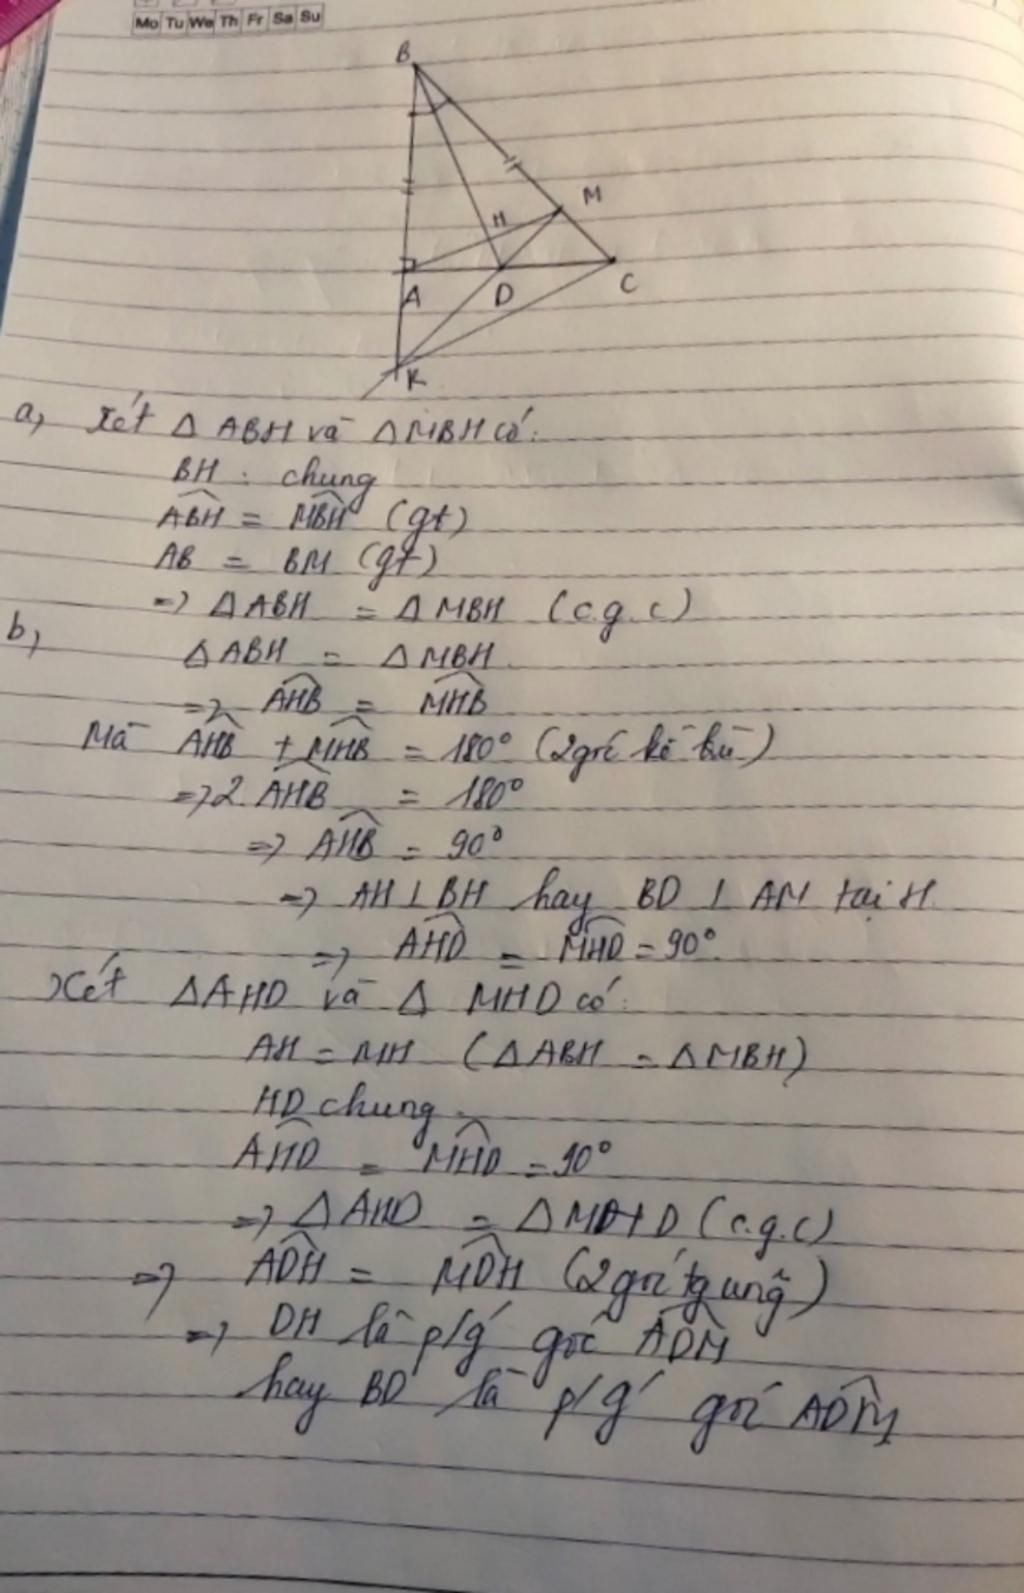 Mo Tu We Th Fr Sa Su
B
M
H
A
D
C
K
a, Xét Δ ABH và Δ MBH có:
BH : chung
ABH = MBH (gt)
AB = BM (gt)
=> Δ ABH = Δ MBH (c.g.c)
b,
Δ ABH = Δ MBH
=> AHB = MHB
Mà AHB + MHB = 180° (2 góc kề bù)
=> 2 AHB = 180°
=> AHB = 90°
=> AH ⊥ BH hay BD ⊥ AM tại H.
=> AHD = MHD = 90°
Xét Δ AHD và Δ MHD có:
AH = MH (Δ ABH = Δ MBH)
HD chung
AHD = MHD = 90°
=> Δ AHD = Δ MHD (c.g.c)
=> ADH = MDH (2 góc tg ưng)
=> DH là p/g góc ADM
hay BD là p/g góc ADM